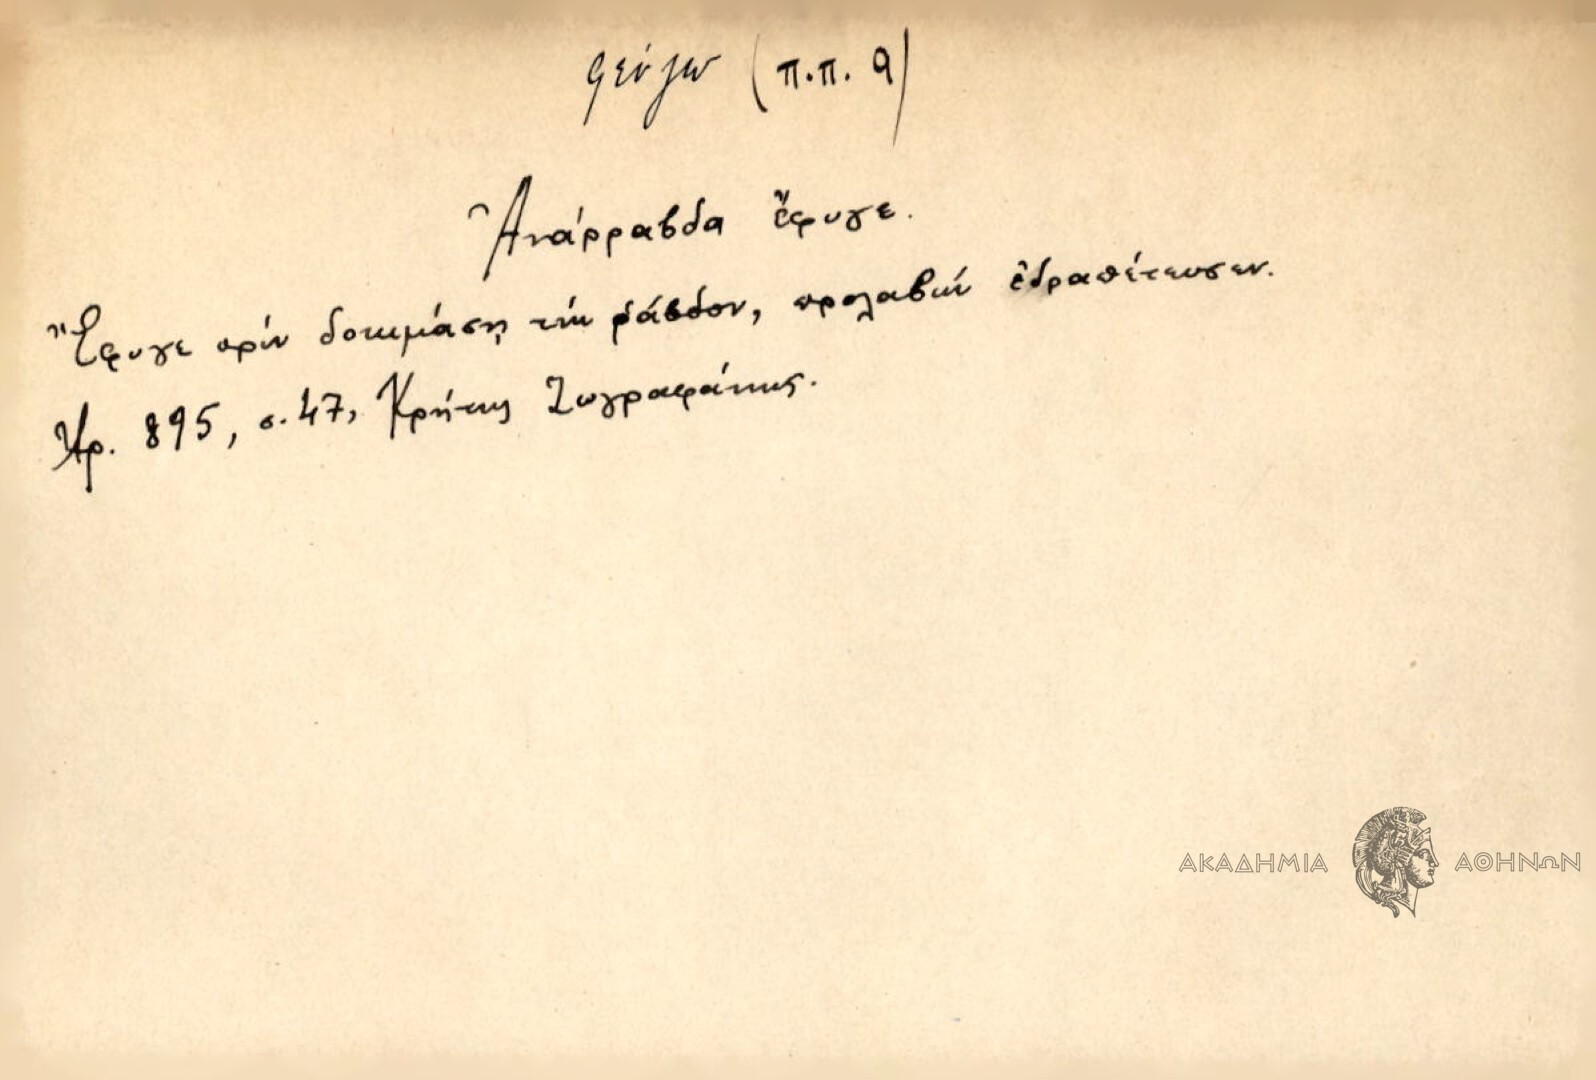 φεύγω (π.π. 9)
Ἀνάρραβδα ἔφυγε.
Ἔφυγε πρίν δοκιμάσῃ τήν ράβδον, προλαβών ἐδραπέτευσεν.
Χρ. 895, σ. 47, Κρήτης Ζωγραφάκης.
ΑΚΑΔΗΜΙΑ ΑΘΗΝΩΝ